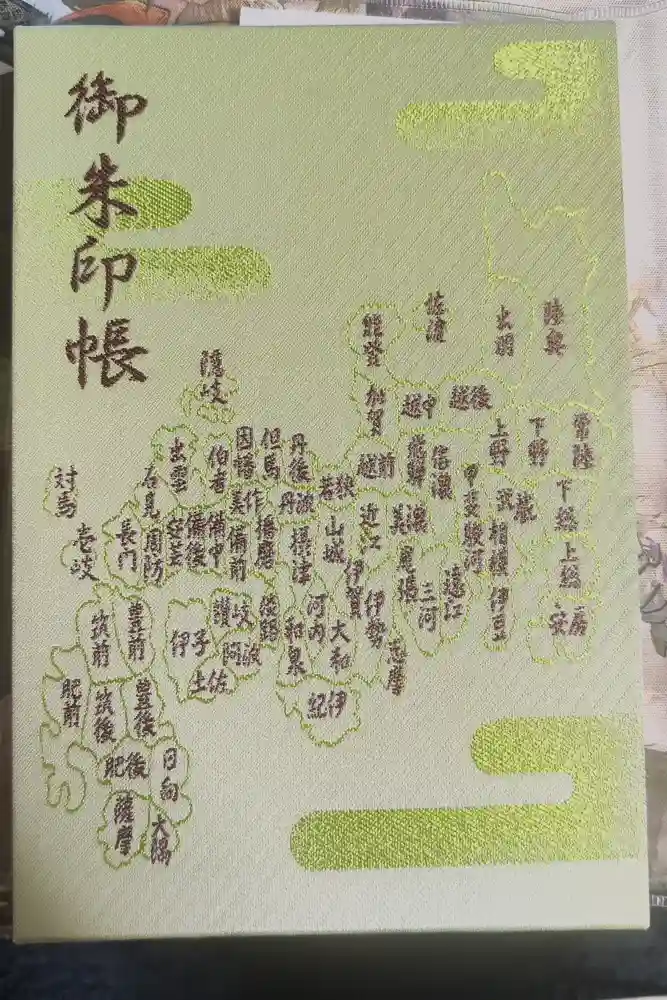 御朱印帳
陸奥
出羽
佐渡
能登
隠岐
加賀
越中
越後
上野
下野
常陸
出雲
伯耆
因幡
但馬
丹後
若狭
越前
飛騨
信濃
甲斐
武蔵
下総
対馬
石見
美作
丹波
壱岐
長門
周防
安芸
備後
備中
備前
播磨
摂津
山城
近江
美濃
尾張
三河
遠江
駿河
相模
伊豆
上総
安房
伊賀
伊勢
志摩
筑前
豊前
伊予
讃岐
阿波
土佐
淡路
和泉
河内
大和
紀伊
肥前
筑後
豊後
肥後
日向
薩摩
大隅